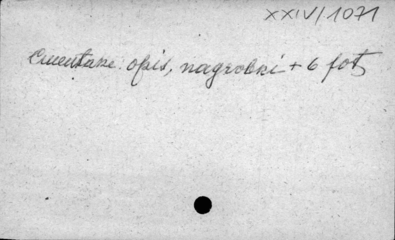 XXIV/1071
Cmentarze: opis, nagrobki + 6 fot.